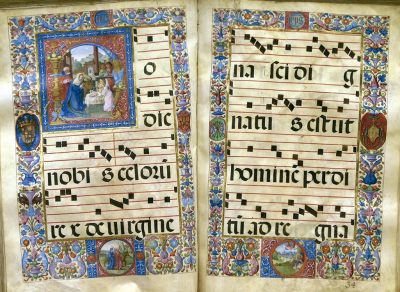 o
die
nobi s celorū
re x de uirgine
na sci di g
natu s est ut
hominē perdi
tū ad re gna
34